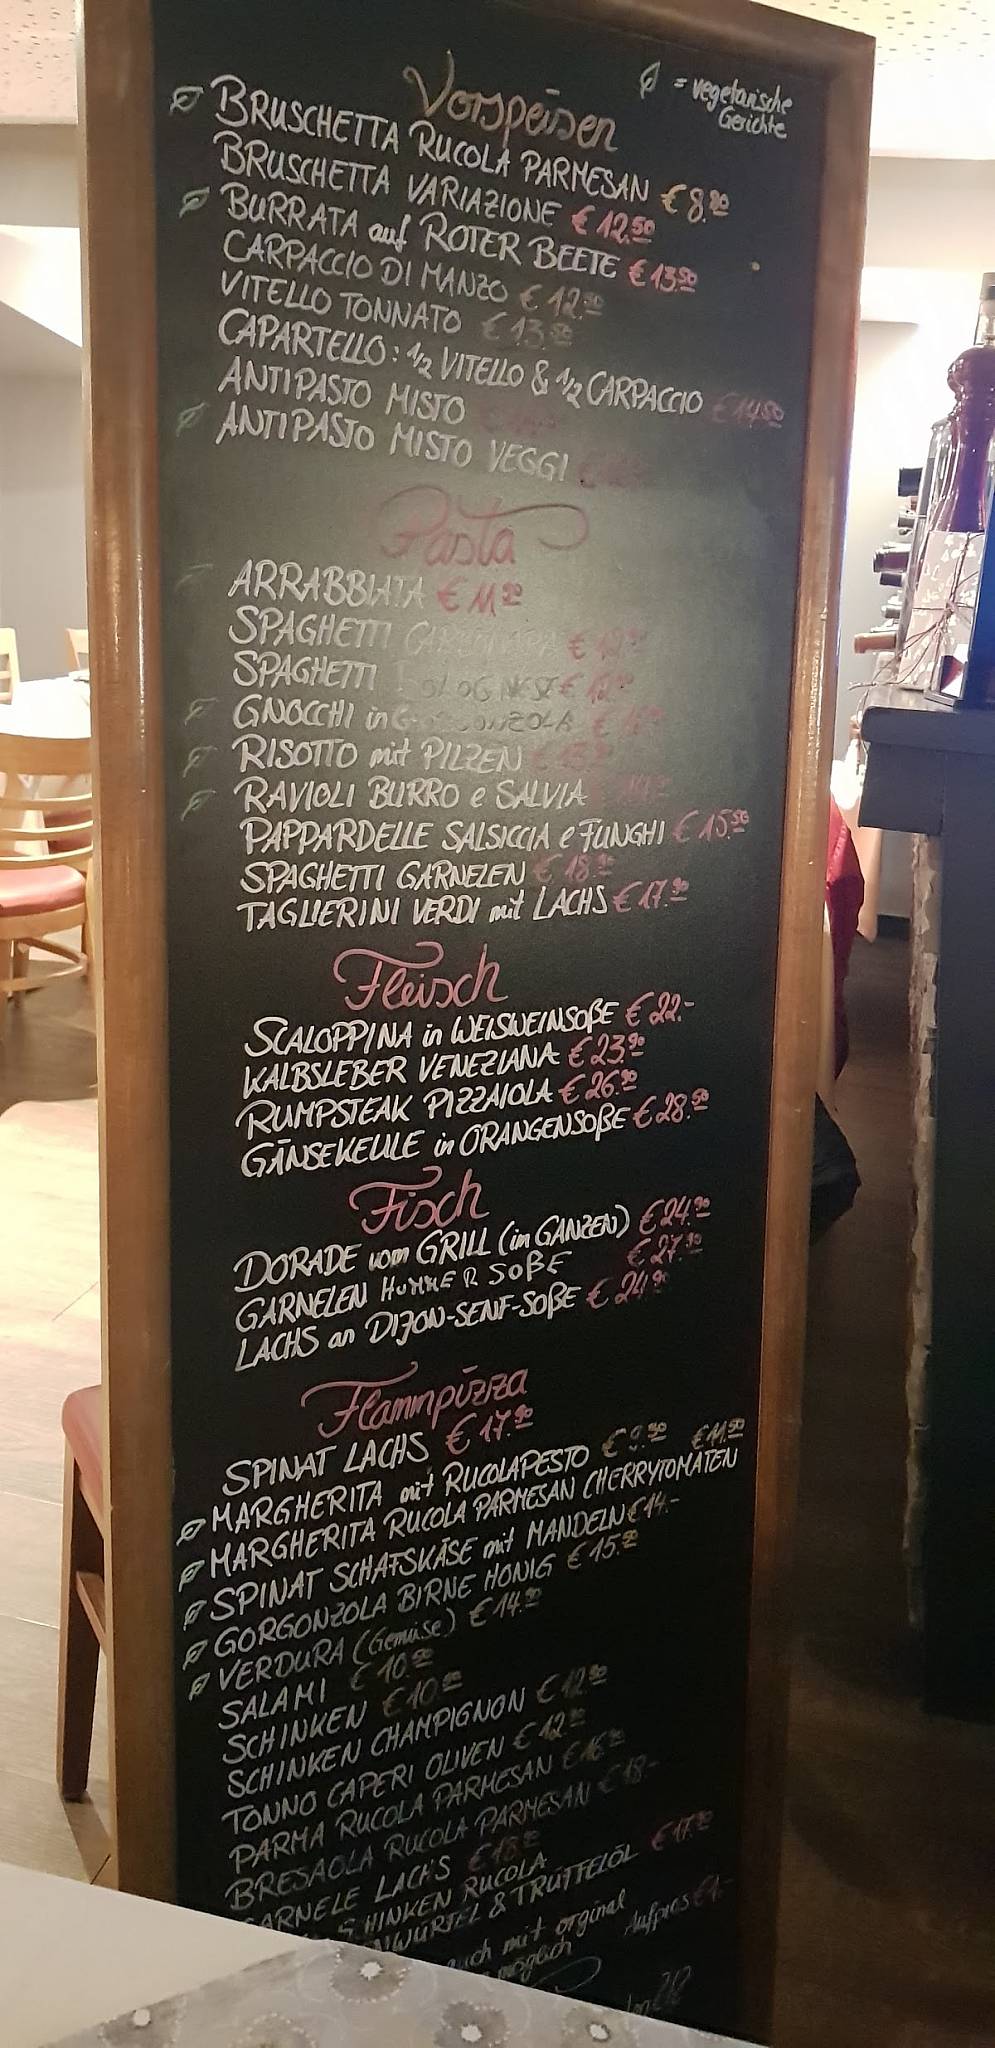 = vegetarische
Gerichte
Vorspeisen
BRUSCHETTA RUCOLA PARMESAN € 8.90
BRUSCHETTA VARIAZIONE € 12.50
BURRATA auf ROTER BEETE € 13.50
CARPACCIO DI MANZO € 12.90
VITELLO TONNATO € 13.50
CAPARTELLO: 1/2 VITELLO & 1/2 CARPACCIO € 14.50
ANTIPASTO MISTO
ANTIPASTO MISTO VEGGI
Pasta
ARRABBIATA € 11.90
SPAGHETTI CARBONARA
SPAGHETTI BOLOGNESE € 12.90
GNOCCHI in GORGONZOLA
RISOTTO mit PILZEN
RAVIOLI BURRO e SALVIA
PAPPARDELLE SALSICCIA e FUNGHI € 15.50
SPAGHETTI GARNELEN € 18.90
TAGLIERINI VERDI mit LACHS € 17.90
Fleisch
SCALOPPINA in WEISWEINSOßE € 22.-
KALBSLEBER VENEZIANA € 23.90
RUMPSTEAK PIZZAIOLA € 26.90
GÄNSEKEULE in ORANGENSOßE € 28.50
Fisch
DORADE vom GRILL (im GANZEN) € 24.90
GARNELEN HUMMER SOßE € 27.90
LACHS an DIJON-SENF-SOßE € 24.90
Flammpizza
SPINAT LACHS € 17.90
MARGHERITA mit RUCOLAPESTO € 9.90 € 11.90
MARGHERITA RUCOLA PARMESAN CHERRYTOMATEN
SPINAT SCHAFSKÄSE mit MANDELN € 14.-
GORGONZOLA BIRNE HONIG € 15.90
VERDURA (Gemüse) € 14.90
SALAMI € 10.90
SCHINKEN € 10.90
SCHINKEN CHAMPIGNON € 12.90
TONNO CAPERI OLIVEN € 12.90
PARMA RUCOLA PARMESAN € 16.90
BRESAOLA RUCOLA PARMESAN € 18.-
GARNELE LACHS € 18.90
SCHINKEN RUCOLA
& TRÜFFELÖL € 17.90
auch mit orginal
möglich Aufpreis